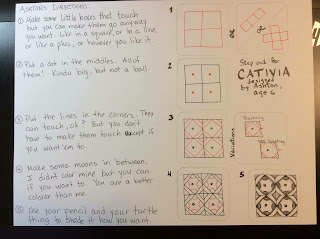 ASHTON'S DIRECTIONS:
① Make some little boxes that touch
but you can make them go anyway
you want. Like in a square, or in a line,
or like a plus, or however you like it
② Put a dot in the middles. All of
them! Kinda big, but not a ball.
③ Put the lines in the corners. They
can touch, ok? But you don't
have to make them touch except if
you want 'em to.
④ Make some moons in between.
I didn't color mine but you can
if you want to. You are a better
colorer than me.
⑤ Use your pencil and your turtle
thing to shade it how you want.
1
or
or
2
Step outs for
CATIVIA
designed
by Ashton,
age 6
3
Variations
Touching
Not Touching
4
5